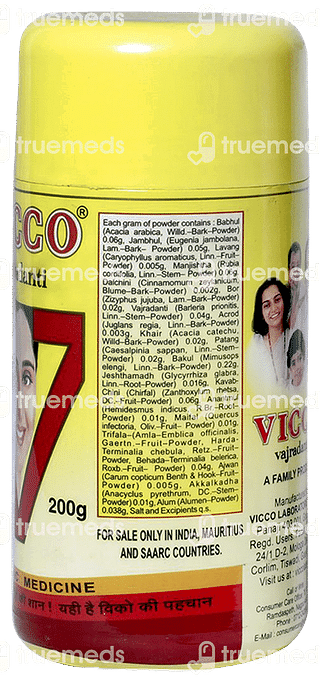 VICCO®
200g
Each gram of powder contains : Babhul
(Acacia arabica, Willd.–Bark–Powder)
0.06g, Jambhul, (Eugenia jambolana,
Lam.–Bark– Powder) 0.05g, Lavang
(Caryophyllus aromaticus, Linn.–Fruit–
Powder) 0.005g, Manjishtha (Rubia
cordifolia, Linn.–Stem– Powder)
Dalchini (Cinnamomum zeylanicum,
Blume–Bark–Powder) 0.002g, Bor
(Zizyphus jujuba, Lam.–Bark–Powder)
0.02g, Vajradanti (Barleria prionitis,
Linn.–Stem–Powder) 0.04g, Acrod
(Juglans regia, Linn.–Bark–Powder)
0.003g, Khair (Acacia catechu,
Willd.–Bark–Powder) 0.02g, Patang
(Caesalpinia sappan, Linn.–Stem–
Powder) 0.02g, Bakul (Mimusops
elengi, Linn.–Bark–Powder) 0.22g,
Jeshthamadh (Glycyrrhiza glabra,
Linn.–Root–Powder) 0.016g, Kavab-
Chini (Chirfal) (Zanthoxylum rhetsa,
DC.–Fruit–Powder) 0.06g
(Hemidesmus indicus, R.Br–Root–
Powder) 0.01g, Maifal (Quercus
infectoria, Oliv–Fruit– Powder) 0.01g,
Trifala–(Amla–Emblica officinalis,
Gaertn–Fruit–Powder, Harda-
Terminalia chebula, Retz–Fruit–
Powder, Behada–Terminalia belerica,
Roxb–Fruit– Powder) 0.04g, Ajwan
(Carum copticum Benth & Hook–Fruit–
Powder) 0.005g, Akkalkadha
(Anacyclus pyrethrum, DC.–Stem–
Powder) 0.01g, Alum (Alumen)
0.038g, Salt and Excipients q.s.
FOR SALE ONLY IN INDIA, MAURITIUS
AND SAARC COUNTRIES.
MEDICINE
यही है विको की पहचान
VICC
vajradan
A FAMILY PR
Manufactur
VICCO LABORATO
Regd. Users
Corlim, Tiswad
Visit us at :
Consumer Care Office
Ramdaspeth,
E-mail : consumer
truemeds